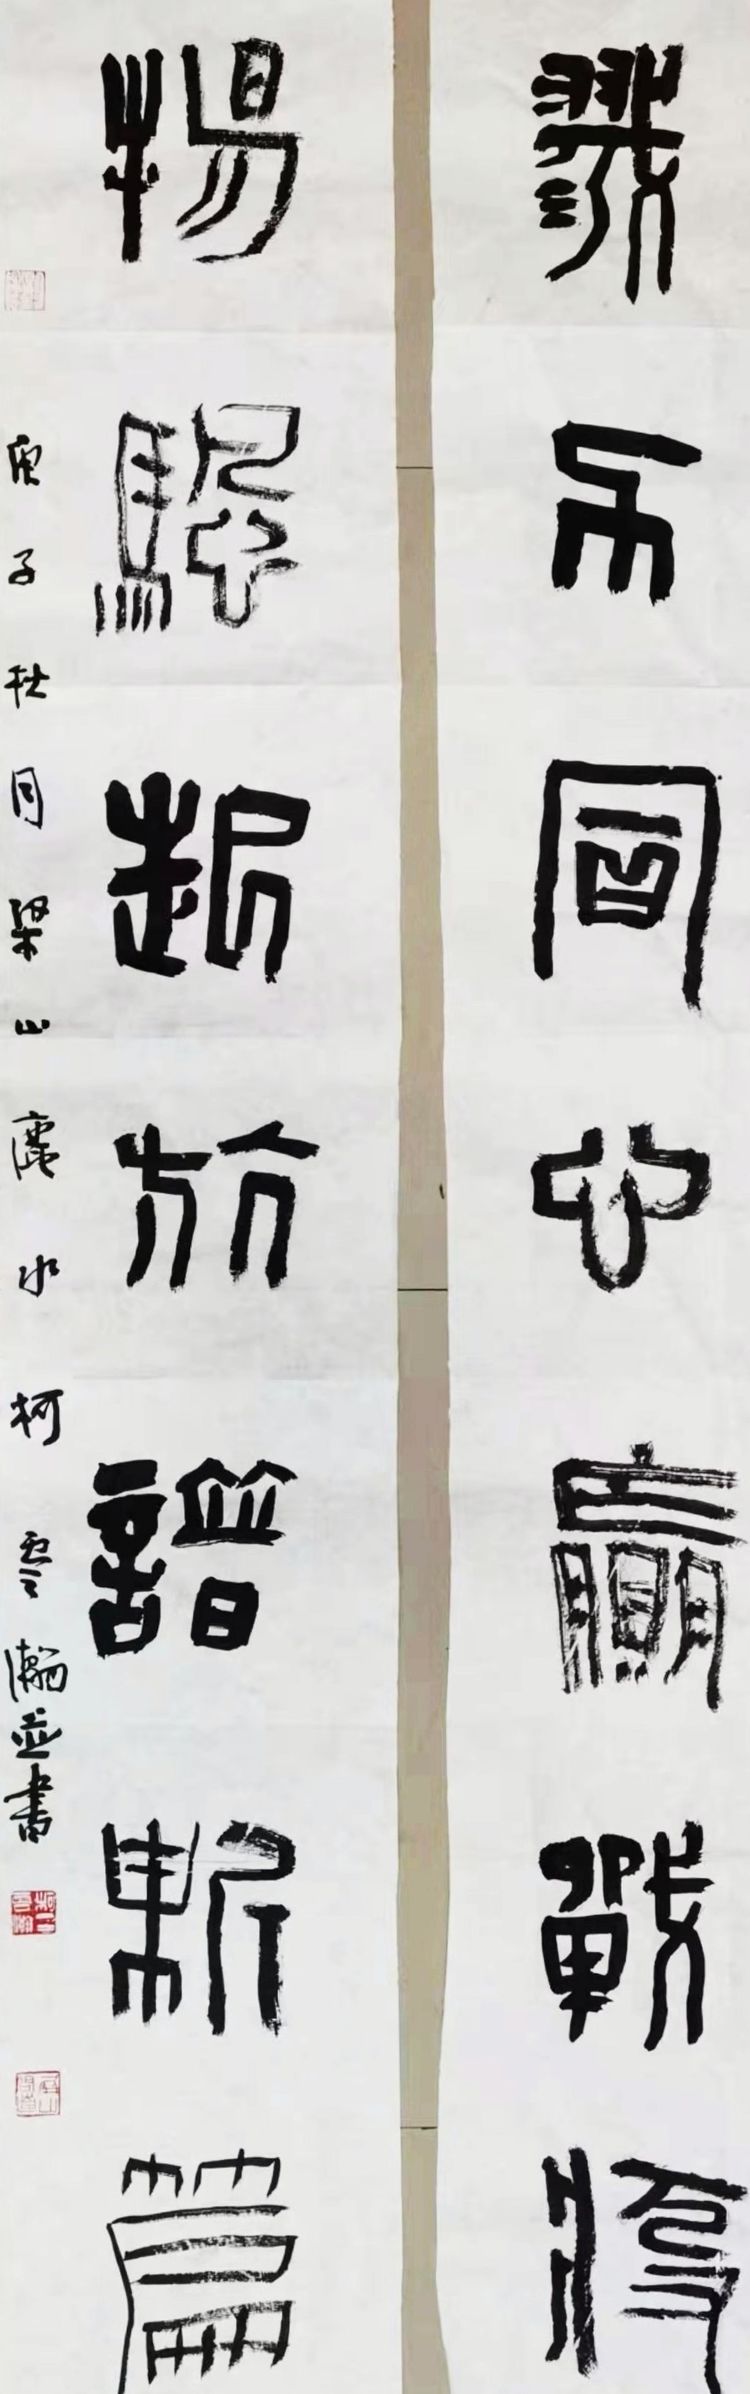 戮力同心贏戰疫
揚颿起航譜新篇
庚子秋月梁山鹿水柯雲瀚並書